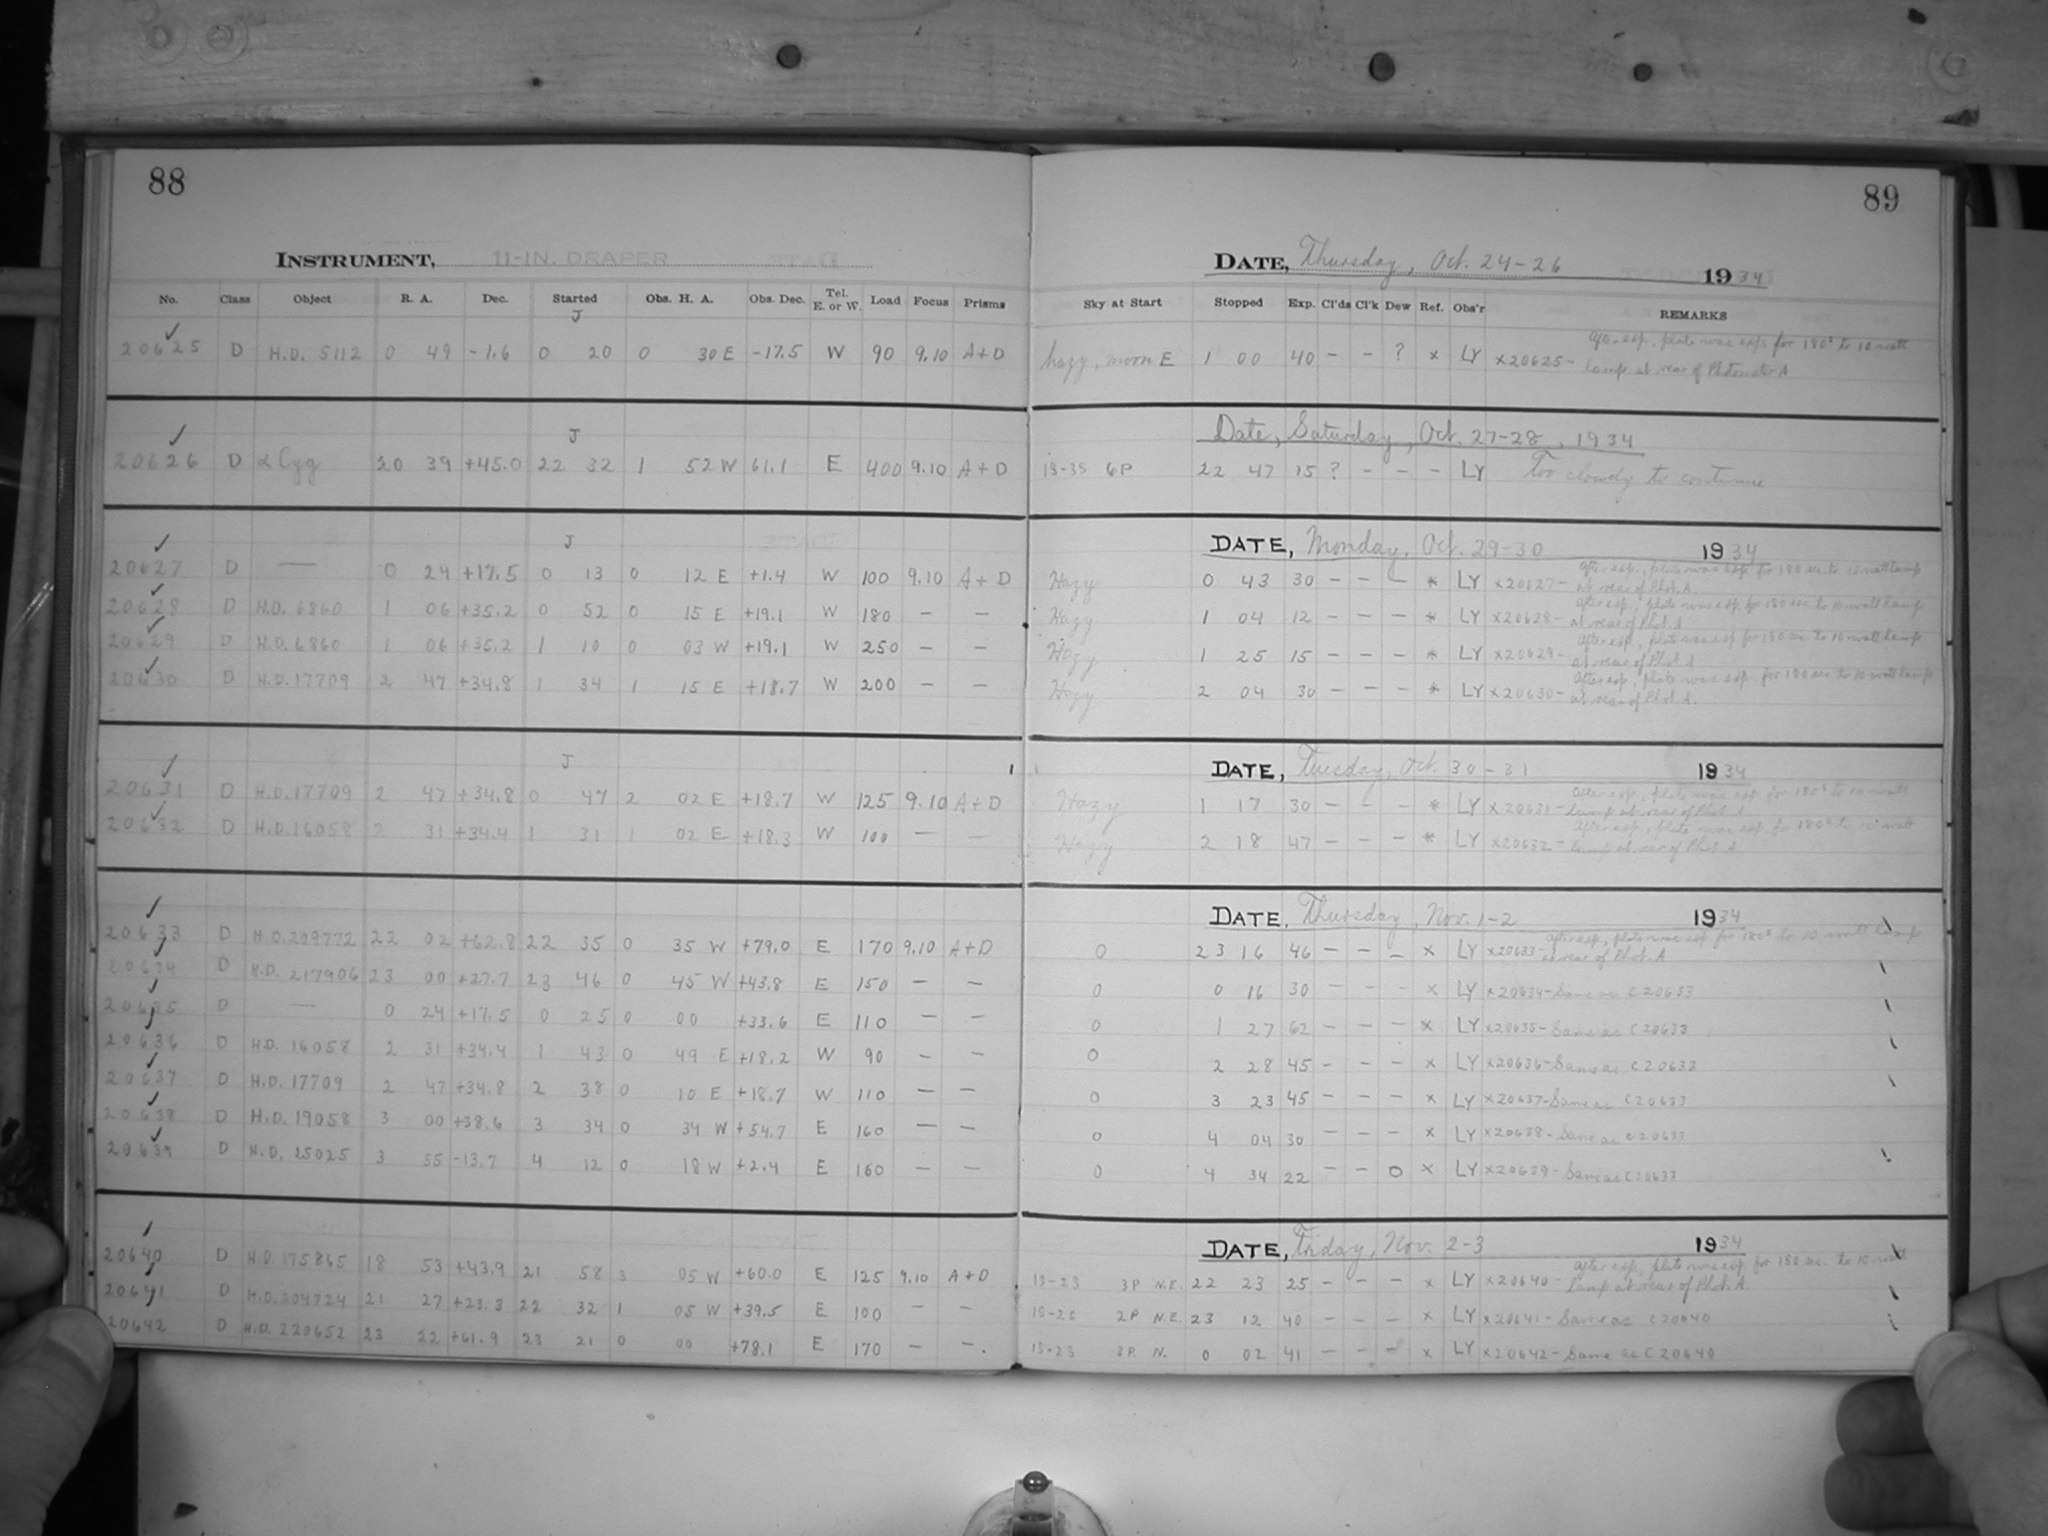 88
INSTRUMENT, 11-IN. DRAPER
No. Class Object R. A. Dec. Started Obs. H. A. Obs. Dec. Tel. E. or W. Load Focus Prisms
J
20625 D H.D. 5112 0 49 -1.6 0 20 0 30 E -17.5 W 90 9.10 A+D
J
20626 D α Cyg 20 39 +45.0 22 32 1 52 W 61.1 E 400 9.10 A+D
J
20627 D — 0 24 +17.5 0 13 0 12 E +1.4 W 100 9.10 A+D
20628 D H.D. 6860 1 06 +35.2 0 52 0 15 E +19.1 W 180 — —
20629 D H.D. 6860 1 06 +35.2 1 10 0 03 W +19.1 W 250 — —
20630 D H.D. 17709 2 47 +34.8 1 34 1 15 E +18.7 W 200 — —
J
20631 D H.D. 17709 2 47 +34.8 0 47 2 02 E +18.7 W 125 9.10 A+D
20632 D H.D. 16058 2 31 +34.4 1 31 1 02 E +18.3 W 100 — —
20633 D H.D. 209772 22 02 +62.8 22 35 0 35 W +79.0 E 170 9.10 A+D
20634 D H.D. 217906 23 00 +27.7 23 46 0 45 W +43.8 E 150 — —
20635 D — 0 24 +17.5 0 25 0 00 +33.6 E 110 — —
20636 D H.D. 16058 2 31 +34.4 1 43 0 49 E +18.2 W 90 — —
20637 D H.D. 17709 2 47 +34.8 2 38 0 10 E +18.7 W 110 — —
20638 D H.D. 19058 3 00 +38.6 3 34 0 34 W +54.7 E 160 — —
20639 D H.D. 25025 3 55 -13.7 4 12 0 18 W +2.4 E 160 — —
20640 D H.D. 175865 18 53 +43.9 21 58 3 05 W +60.0 E 125 9.10 A+D
20641 D H.D. 204724 21 27 +23.3 22 32 1 05 W +39.5 E 100 — —
20642 D H.D. 220652 23 22 +61.9 23 21 0 00 +78.1 E 170 — —.
89
DATE, Thursday, Oct. 24-26 1934
Sky at Start Stopped Exp. Cl'ds Cl'k Dew Ref. Obs'r REMARKS
After exp., plate was exp. for 180s to 10 watt
hazy, moon E 1 00 40 — — ? x LY x20625- lamp at rear of Photometer A
Date, Saturday, Oct. 27-28, 1934
18-35 6P 22 47 15 ? — — — LY Too cloudy to continue
DATE, Monday, Oct. 29-30 1934
After exp., plate was exp. for 180 sec. to 10 watt lamp
Hazy 0 43 30 — — — * LY x20627- at rear of Phot. A.
After exp., plate was exp. for 180 sec to 10 watt lamp
Hazy 1 04 12 — — — * LY x20628- at rear of Phot. A
After exp., plate was exp for 180 sec. to 10 watt lamp
Hazy 1 25 15 — — — * LY x20629- at rear of Phot. A
After exp., plate was exp. for 180 sec to 10 watt lamp
Hazy 2 04 30 — — — * LY x20630- at rear of Phot. A.
DATE, Tuesday, Oct. 30-31 1934
After exp., plate was exp. for 180s to 10 watt
Hazy 1 17 30 — — — * LY x20631- lamp at rear of Phot. A
After exp., plate was exp. for 180s to 10 watt
Hazy 2 18 47 — — — * LY x20632- lamp at rear of Phot. A
DATE, Thursday, Nov. 1-2 1934
After exp., plate was exp for 180s to 10 watt lamp
0 23 16 46 — — — x LY x20633- at rear of Phot. A
0 0 16 30 — — — x LY x20634- Same as C20633
0 1 27 62 — — — x LY x20635- Same as C20633
0 2 28 45 — — — x LY x20636- Same as C20633
0 3 23 45 — — — x LY x20637- Same as C20633
0 4 04 30 — — — x LY x20638- Same as C20633
0 4 34 22 — — 0 x LY x20639- Same as C20633
DATE, Friday, Nov. 2-3 1934
After exp., plate was exp. for 180 sec. to 10 watt
18-23 3P N.E. 22 23 25 — — — x LY x20640- lamp at rear of Phot. A.
18-25 2P N.E. 23 12 40 — — — x LY x20641- Same as C20640
18-25 3P. N. 0 02 41 — — — x LY x20642- Same as C20640